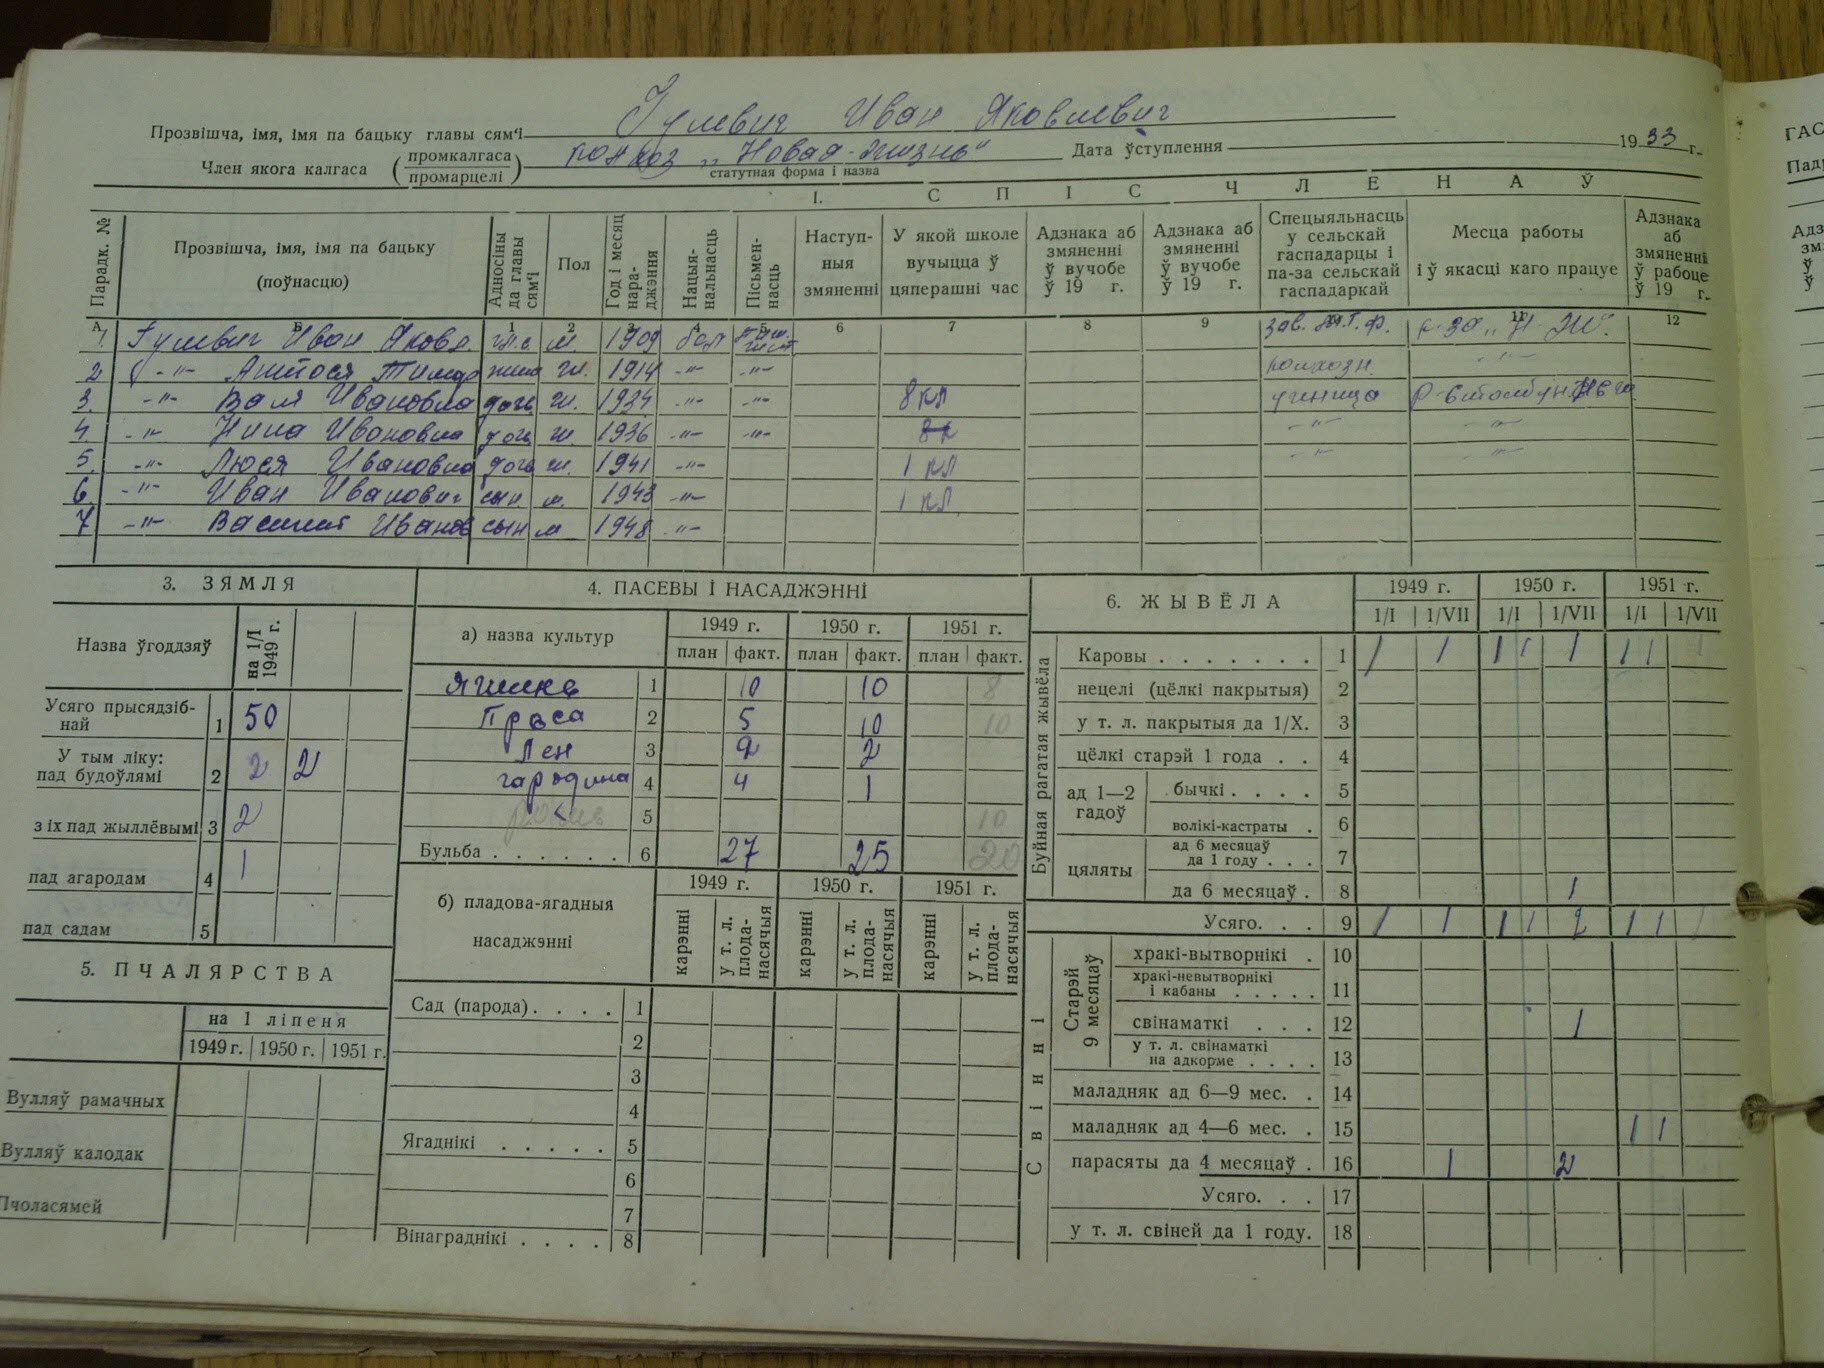 Прозвішча, імя, імя па бацьку главы сям'і Гулевич Иван Яковлевич
Член якога калгаса (промкалгаса промарцелі) колхоз „Новая-жизнь" Дата ўступлення 1933 г.
статутная форма і назва
I. СПІС ЧЛЕНАЎ
Парадк. № Прозвішча, імя, імя па бацьку (поўнасцю) Адносіны да главы сям'і Пол Год і месяц нараджэння Нацыянальнасць Пісьменнасць Наступныя змяненні У якой школе вучыцца ў цяперашні час Адзнака аб змяненні ў вучобе ў 19 г. Адзнака аб змяненні ў вучобе ў 19 г. Спецыяльнасць у сельскай гаспадарцы і па-за сельскай гаспадаркай Месца работы і ў якасці каго працуе Адзнака аб змяненні ў рабоце ў 19 г.
А Б 1 2 3 4 5 6 7 8 9 10 11 12
1. Гулевич Иван Яковл. гл.с. м 1909 бел зав. М.Т.Ф. к-за „Н Ж".
2 -"- Тимоф жена ж. 1914 -"- -"- колхозн. -"-
3. -"- Валя Ивановна дочь ж. 1934 -"- -"- 8 кл ученица
4. -"- Нина Ивановна дочь ж. 1936 -"- -"- 8к -"- -"-
5. -"- Люся Ивановна дочь ж. 1941 -"- 1 кл -"- -"-
6. -"- Иван Иванович сын. м. 1943 -"- 1 кл.
7 -"- Василий Иванов сын м 1948 -"-
3. ЗЯМЛЯ
Назва ўгоддзяў на 1/I 1949 г.
Усяго прысядзібнай 1 50
У тым ліку: пад будоўлямі 2 2 2
з іх пад жыллёвымі 3 2
пад агародам 4 1
пад садам 5
5. ПЧАЛЯРСТВА
на 1 ліпеня
1949 г. 1950 г. 1951 г.
Вулляў рамачных
Вулляў калодак
Пчоласямей
4. ПАСЕВЫ І НАСАДЖЭННІ
а) назва культур 1949 г. 1950 г. 1951 г.
план факт. план факт. план факт.
Ячмень 1 10 10 8
Проса 2 5 10 10
Лен 3 2 2
гародина 4 4 1
5 10
Бульба . . . . . . 6 27 25 20
б) пладова-ягадныя насаджэнні 1949 г. 1950 г. 1951 г.
карэнні у т. л. плоданасячыя карэнні у т. л. плоданасячыя карэнні у т. л. плоданасячыя
Сад (парода) . . . . 1
2
3
4
Ягаднікі . . . . . 5
6
7
Вінаграднікі . . . . 8
6. ЖЫВЁЛА 1949 г. 1950 г. 1951 г.
1/I 1/VII 1/I 1/VII 1/I 1/VII
Буйная рагатая жывёла
Каровы . . . . . . . 1 1 1 1 1 1 1 1 1
нецелі (цёлкі пакрытыя) 2
у т. л. пакрытыя да 1/X. 3
цёлкі старэй 1 года . . 4
ад 1—2 гадоў бычкі . . . . 5
волікі-кастраты . 6
цяляты ад 6 месяцаў да 1 году . . . 7
да 6 месяцаў . 8 1
Усяго. . . 9 1 1 1 1 2 1 1 1
Свінні
Старэй 9 месяцаў хракі-вытворнікі . 10
хракі-невытворнікі і кабаны . . . . . 11
свінаматкі . . . 12 1
у т. л. свінаматкі на адкорме . . . . 13
маладняк ад 6—9 мес. . 14
маладняк ад 4—6 мес. . 15 1 1
парасяты да 4 месяцаў . 16 1 2
Усяго. . . 17
у т. л. свіней да 1 году. 18